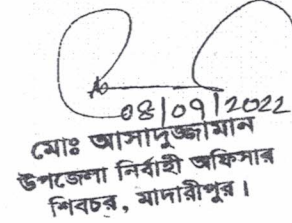 08/09/2022
মোঃ আসাদুজ্জামান
উপজেলা নির্বাহী অফিসার
শিবচর, মাদারীপুর।